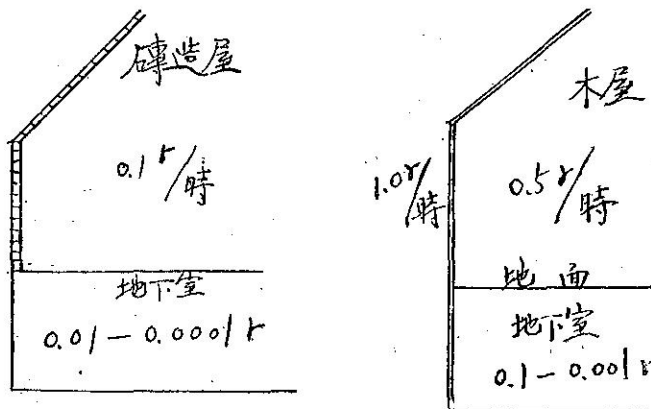 磚造屋
0.1 r/時
地下室
0.01-0.0001 r
木屋
1.0r/時
0.5 r/時
地面
地下室
0.1-0.001 r